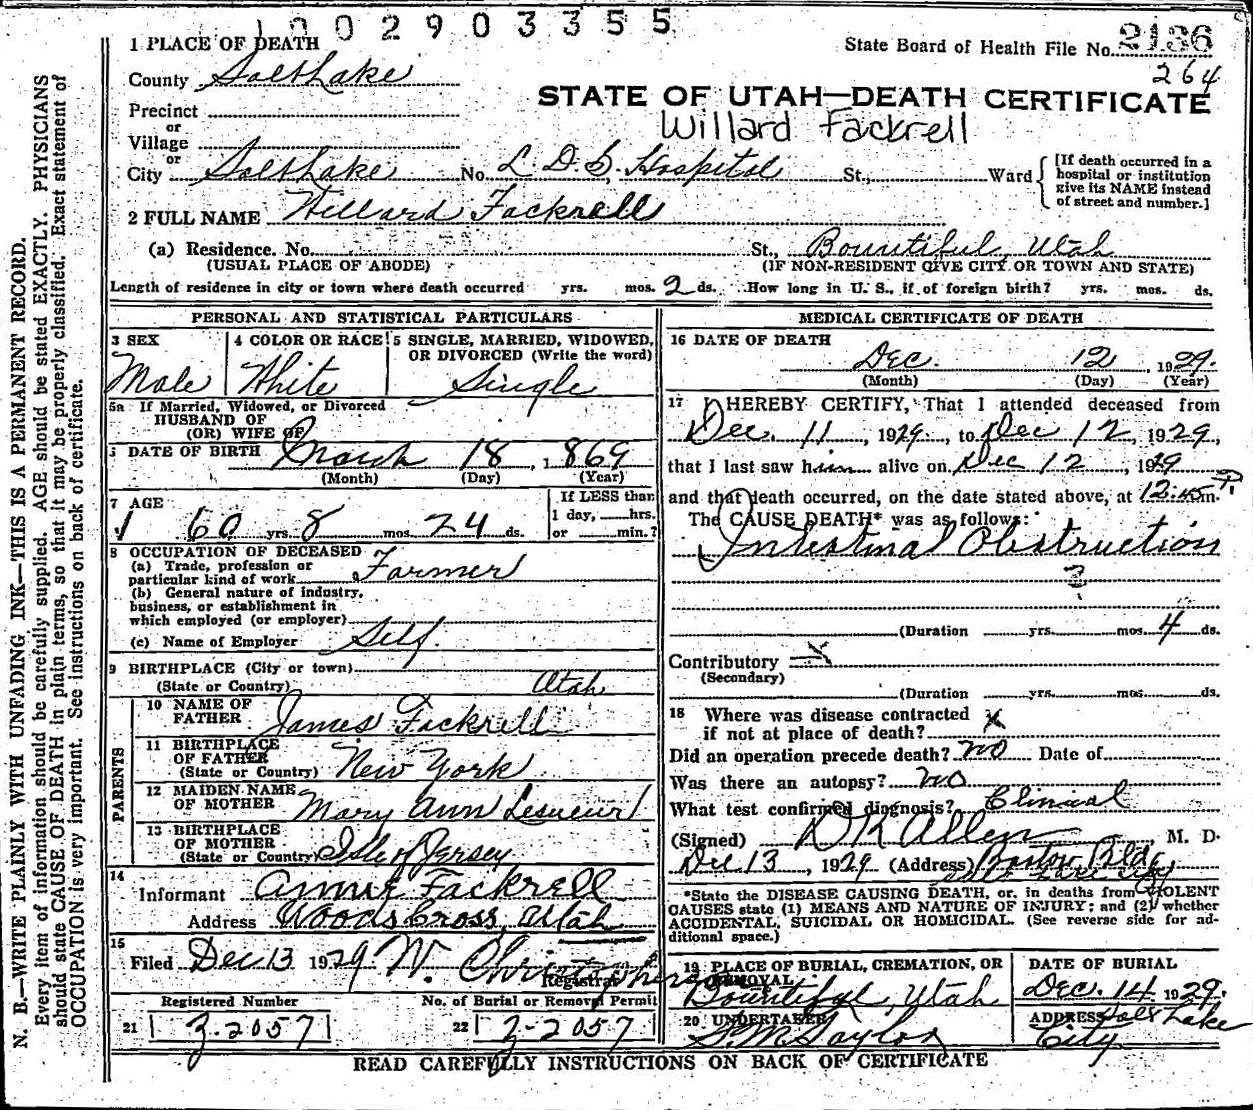 1002903355
1 PLACE OF DEATH
State Board of Health File No. 2136
County Salt Lake
264
Precinct
STATE OF UTAH—DEATH CERTIFICATE
or
Willard Fackrell
Village
or
City Salt Lake No. L D S Hospital St., Ward
[If death occurred in a hospital or institution give its NAME instead of street and number.]
2 FULL NAME Willard Fackrell
(a) Residence. No. St., Bountiful, Utah
(USUAL PLACE OF ABODE) (IF NON-RESIDENT GIVE CITY OR TOWN AND STATE)
Length of residence in city or town where death occurred yrs. mos. 2 ds. How long in U. S., if of foreign birth? yrs. mos. ds.
PERSONAL AND STATISTICAL PARTICULARS
3 SEX
Male
4 COLOR OR RACE
White
5 SINGLE, MARRIED, WIDOWED, OR DIVORCED (Write the word)
Single
5a If Married, Widowed, or Divorced
HUSBAND OF
(OR) WIFE OF
6 DATE OF BIRTH March 18, 1869
(Month) (Day) (Year)
7 AGE
60 yrs. 8 mos. 24 ds.
If LESS than
1 day, hrs.
or min.?
8 OCCUPATION OF DECEASED
(a) Trade, profession or
particular kind of work Farmer
(b) General nature of industry,
business, or establishment in
which employed (or employer)
(c) Name of Employer Self.
9 BIRTHPLACE (City or town)
(State or Country) Utah
PARENTS
10 NAME OF
FATHER James Fackrell
11 BIRTHPLACE
OF FATHER
(State or Country) New York
12 MAIDEN NAME
OF MOTHER Mary Ann Lesueur
13 BIRTHPLACE
OF MOTHER
(State or Country) Isle of Jersey
14
Informant Annie Fackrell
Address Woods Cross, Utah
15
Filed Dec 13 1929 W. Christopherson
Registrar
Registered Number
21 Z-2057
No. of Burial or Removal Permit
22 Z-2057
MEDICAL CERTIFICATE OF DEATH
16 DATE OF DEATH
Dec. 12, 1929.
(Month) (Day) (Year)
17 I HEREBY CERTIFY, That I attended deceased from
Dec. 11, 1929, to Dec 12, 1929,
that I last saw him alive on Dec 12, 1929
and that death occurred, on the date stated above, at 12:45 P.m.
The CAUSE DEATH* was as follows:
Intestinal Obstruction
?
(Duration yrs. mos. 4 ds.
Contributory X
(Secondary)
(Duration yrs. mos. ds.
18 Where was disease contracted
if not at place of death? X
Did an operation precede death? no Date of
Was there an autopsy? no
What test confirmed diagnosis? Clinical
(Signed) D K Allen M. D.
Dec 13, 1929 (Address) Boston Bldg
Salt Lake City
*State the DISEASE CAUSING DEATH, or, in deaths from VIOLENT
CAUSES state (1) MEANS AND NATURE OF INJURY; and (2) whether
ACCIDENTAL, SUICIDAL OR HOMICIDAL. (See reverse side for ad-
ditional space.)
19 PLACE OF BURIAL, CREMATION, OR
REMOVAL
Bountiful, Utah
DATE OF BURIAL
Dec. 14 1929.
20 UNDERTAKER
S. M. Taylor
ADDRESS Salt Lake
City
READ CAREFULLY INSTRUCTIONS ON BACK OF CERTIFICATE
N. B.—WRITE PLAINLY WITH UNFADING INK—THIS IS A PERMANENT RECORD.
Every item of information should be carefully supplied. AGE should be stated EXACTLY. PHYSICIANS
should state CAUSE OF DEATH in plain terms, so that it may be properly classified. Exact statement of
OCCUPATION is very important. See instructions on back of certificate.